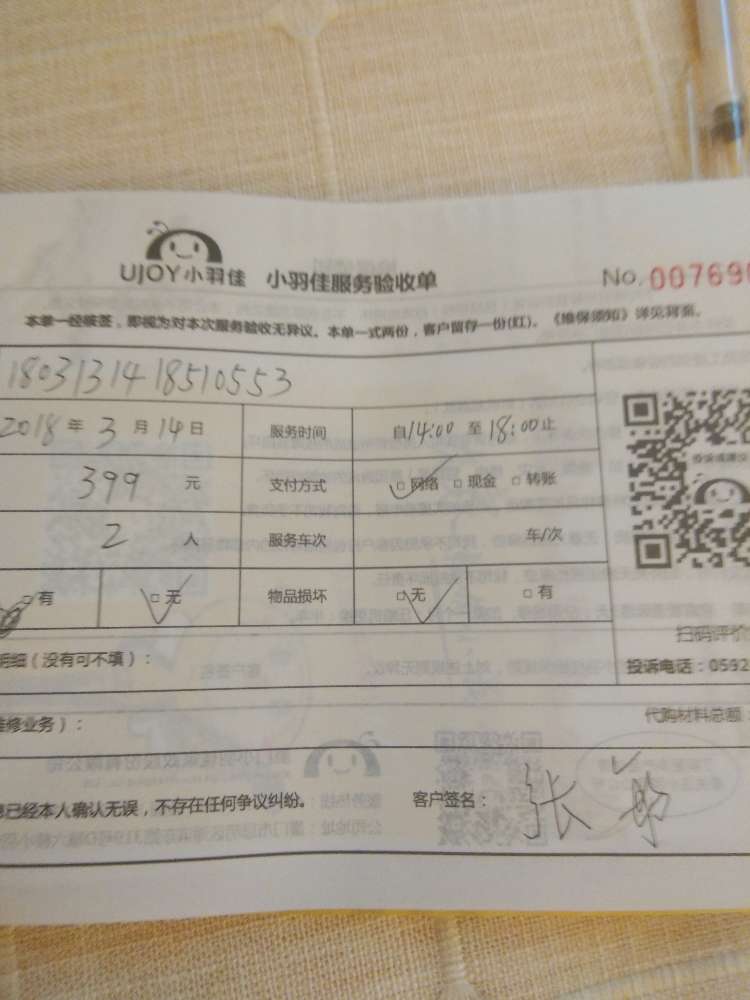 UJOY小羽佳 小羽佳服务验收单 No.00769
本单一经签签，即视为对本次服务验收无异议。本单一式两份，客户留存一份(红)。《维保须知》详见背面。
1803131418510553
2018年3月14日 服务时间 自14:00至18:00止
399元 支付方式 □网络 □现金 □转账
2人 服务车次 车/次
□有 □无 物品损坏 □无 □有
扫码评价
明细（没有可不填）： 投诉电话：0592
维修业务）： 代购材料总额：
已经本人确认无误，不存在任何争议纠纷。 客户签名：张敏